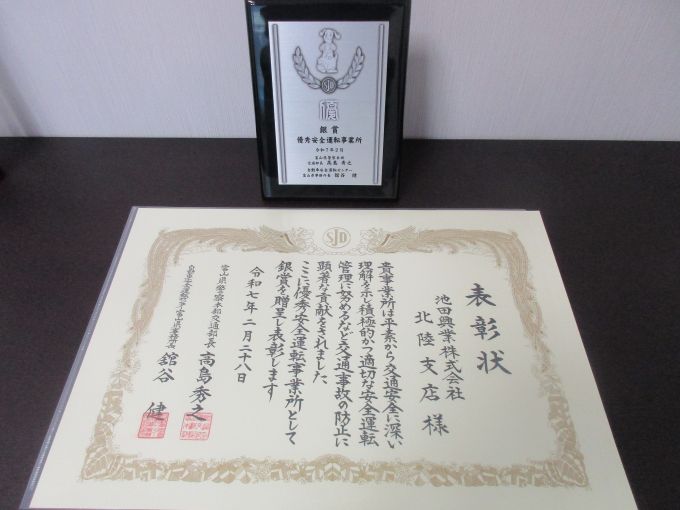 SJD
優
銀賞
優秀安全運転事業所
令和7年2月
富山県警察本部
交通部長 髙島 秀之
自動車安全運転センター
富山県事務所長 舘谷 健
SJD
表彰状
池田興業株式会社
北陸支店 様
貴事業所は平素から交通安全に深い
理解を示し積極的かつ適切な安全運転
管理に努めるなど交通事故の防止に
顕著な貢献をされました
ここに優秀安全運転事業所として
銀賞を贈呈し表彰します
令和七年二月二十八日
富山県警察本部交通部長 髙島秀之
自動車安全運転センター富山県事務所長 舘谷 健